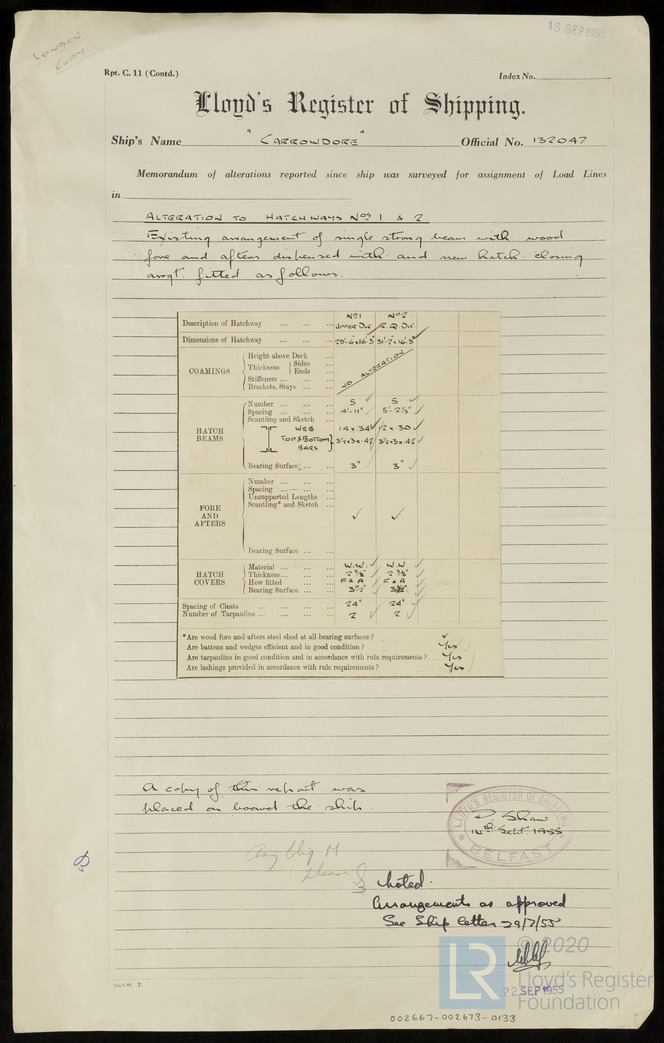 LONDON
COPY.
16 SEP 1955
Rpt. C. 11 (Contd.)
Index No.
Lloyd's Register of Shipping.
Ship's Name "CARROWDORE" Official No. 132047
Memorandum of alterations reported since ship was surveyed for assignment of Load Lines
in
ALTERATION TO HATCHWAYS Nos 1 & 2.
Existing arrangement of single strong beam with wood
fore and afters dispensed with and new hatch closing
arrgt. fitted as follows.
No1 No2
Description of Hatchway ... ... ... Upper Dk R.Q.Dk
Dimensions of Hatchway ... ... ...
COAMINGS
Height above Deck ...
Thickness { Sides ...
Ends ...
Stiffeners ... ...
Brackets, Stays ... ...
NO ALTERATION
HATCH BEAMS
Number ... ... ... 5 ✓ 5 ✓
Spacing ... ... ... 4'-11" ✓ 5'-2½" ✓
Scantling and Sketch ...
WEB 14 x .34 ✓ 12 x .30 ✓
TOP & BOTTOM BARS 3½x3x.42 3½x3x.42 ✓
Bearing Surface ... ... 3" ✓ 3" ✓
FORE AND AFTERS
Number ... ... ...
Spacing ... ... ...
Unsupported Lengths ...
Scantling* and Sketch ...
✓ ✓
Bearing Surface ... ...
HATCH COVERS
Material ... ... ... W.W. ✓ W.W. ✓
Thickness ... ... ... 2⅜" ✓ 2⅜" ✓
How fitted ... ... F & A ✓ F & A ✓
Bearing Surface ... ... 3½" ✓ 3½" ✓
Spacing of Cleats ... ... ... ... 24" ✓ 24" ✓
Number of Tarpaulins ... ... ... ... 2 ✓ 2 ✓
*Are wood fore and afters steel shod at all bearing surfaces ? ✓
Are battens and wedges efficient and in good condition ? Yes
Are tarpaulins in good condition and in accordance with rule requirements ? Yes
Are lashings provided in accordance with rule requirements ? Yes
A copy of this report was
placed on board the ship.
LLOYD'S REGISTER OF SHIPPING
D. Shaw
14th Sept. 1955
BELFAST
noted.
Arrangements as approved
See Ship letter 29/7/55
22 SEP 1955
LR
© 2020
Lloyd's Register
Foundation
002667-002673-0133